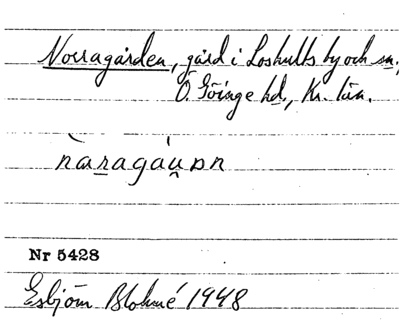 Norragården, gård i Loshults by och sn,
Ö. Göinge hd, Kr. län.
ǹaragáu̯ɒn
Nr 5428
Esbjörn Blohmé 1948